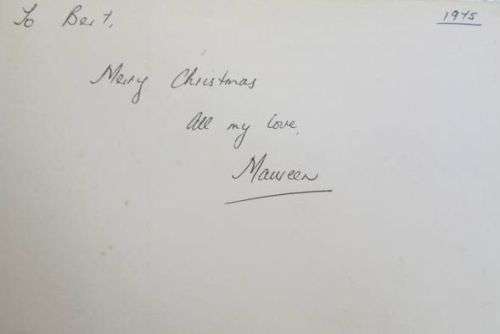 To Bert,
1975
Merry Christmas
All my love,
Maureen